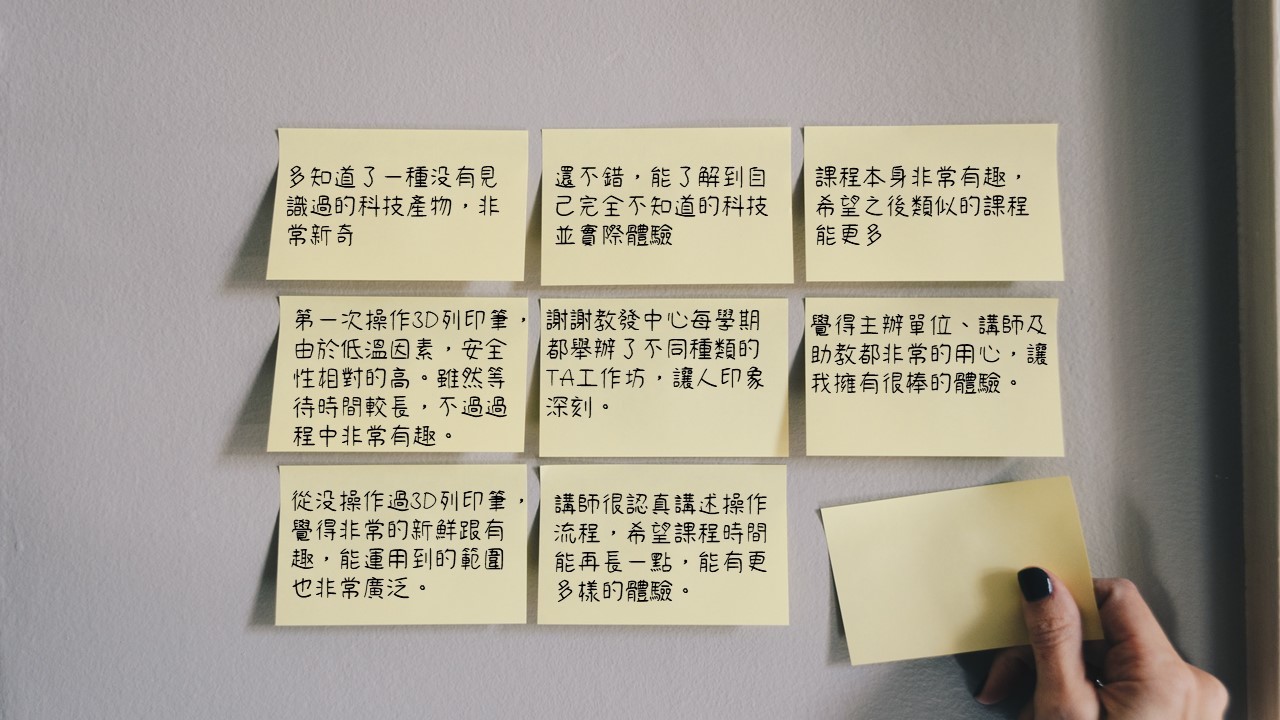 多知道了一種沒有見
識過的科技產物，非
常新奇
還不錯，能了解到自
己完全不知道的科技
並實際體驗
課程本身非常有趣，
希望之後類似的課程
能更多
第一次操作3D列印筆，
由於低溫因素，安全
性相對的高。雖然等
待時間較長，不過過
程中非常有趣。
謝謝教發中心每學期
都舉辦了不同種類的
TA工作坊，讓人印象
深刻。
覺得主辦單位、講師及
助教都非常的用心，讓
我擁有很棒的體驗。
從沒操作過3D列印筆，
覺得非常的新鮮跟有
趣，能運用到的範圍
也非常廣泛。
講師很認真講述操作
流程，希望課程時間
能再長一點，能有更
多樣的體驗。